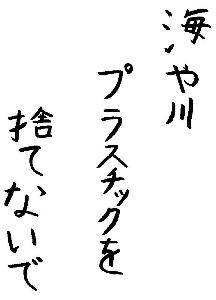 海や川
プラスチックを
捨てないで